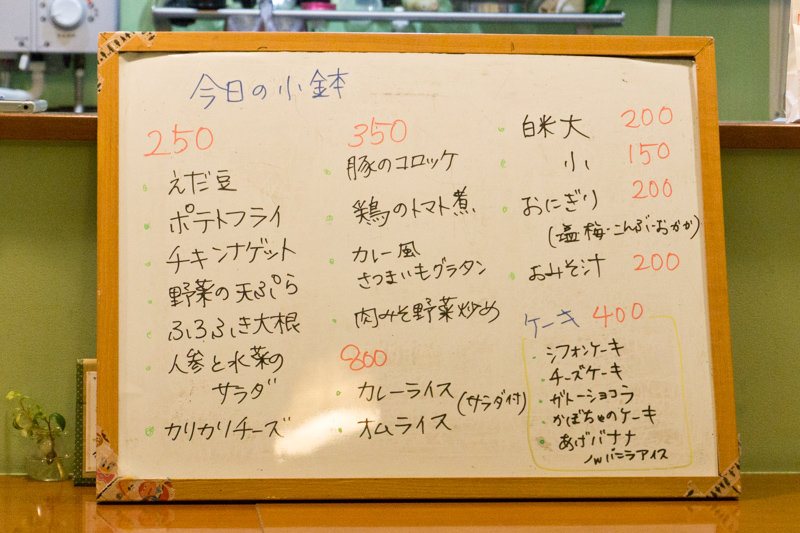 今日の小鉢
250
えだ豆
ポテトフライ
チキンナゲット
野菜の天ぷら
ふろふき大根
人参と水菜の
サラダ
カリカリチーズ
350
豚のコロッケ
鶏のトマト煮
カレー風
さつまいもグラタン
肉みそ野菜炒め
800
カレーライス
オムライス
(サラダ付)
白米大 200
小 150
おにぎり 200
(塩・梅・こんぶ・おかか)
おみそ汁 200
ケーキ 400
シフォンケーキ
チーズケーキ
ガトーショコラ
かぼちゃのケーキ
あげバナナ
/wバニラアイス